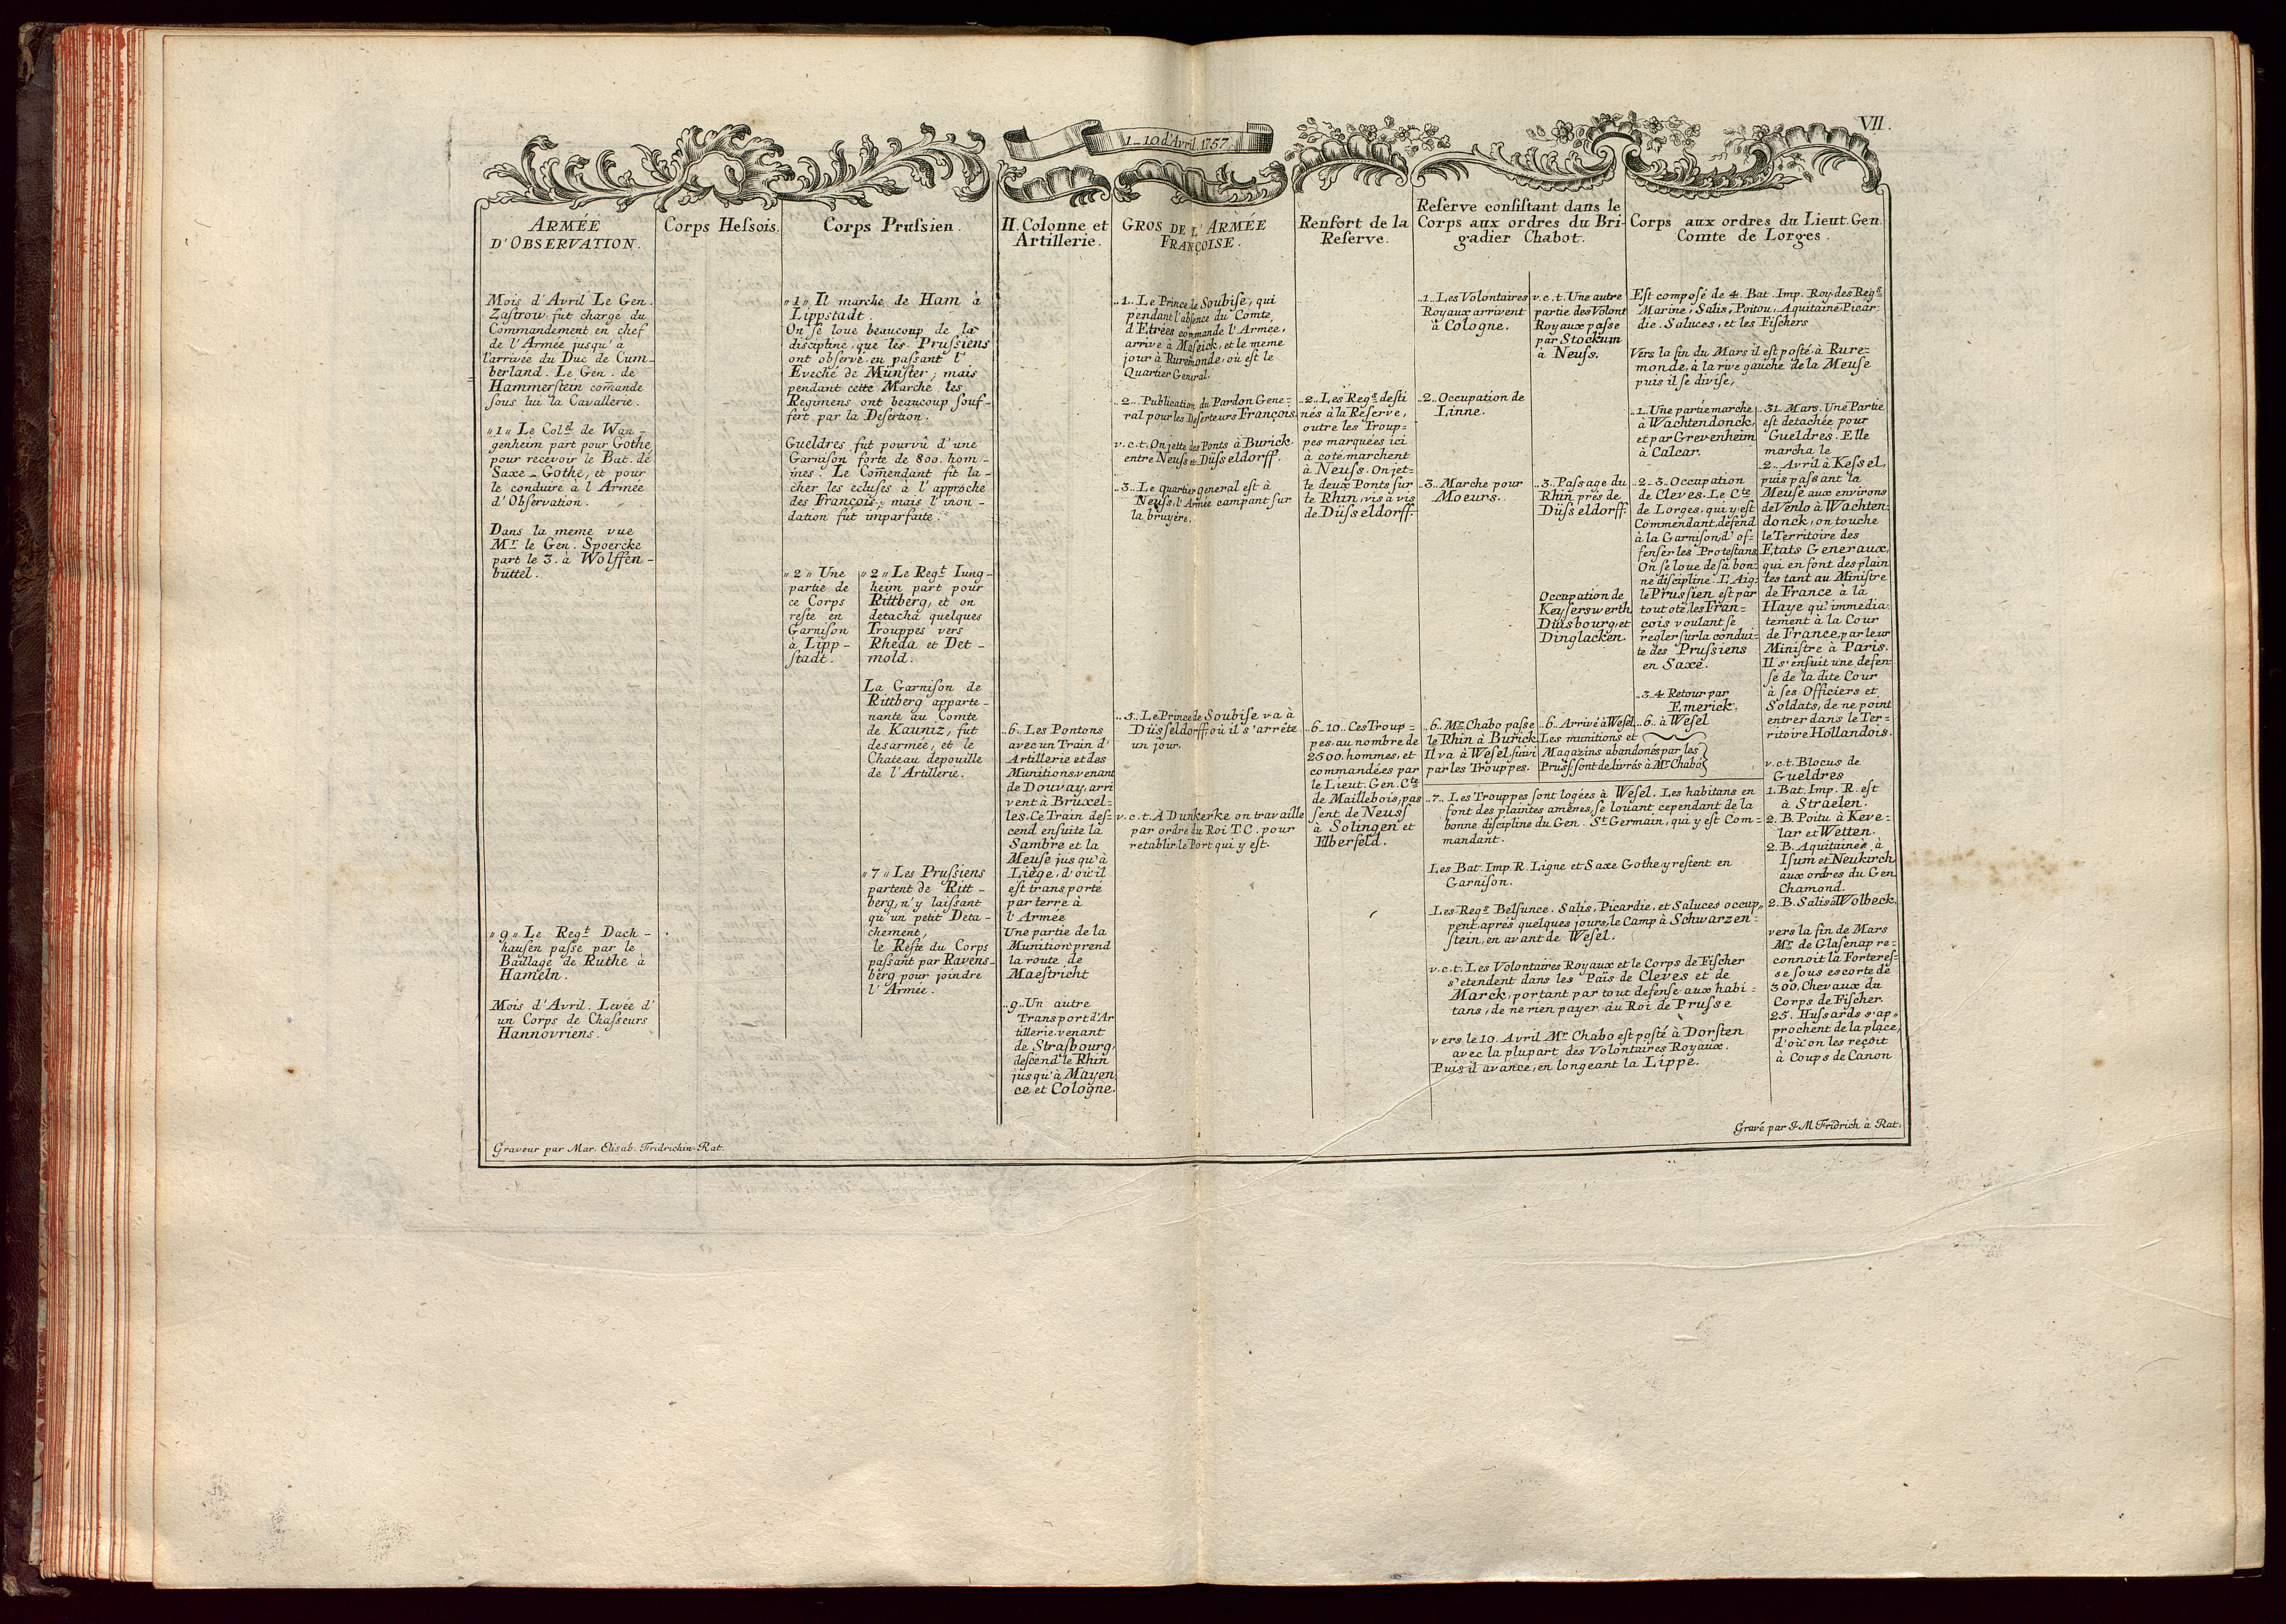 1_10 d'Avril 1757.
VII.
ARMÉE
D'OBSERVATION.
Mois d'Avril Le Gen.
Zastrow fut chargé du
Commandement en chef
de l'Armée jusqu'à
l'arrivée du Duc de Cum-
berland. Le Gen. de
Hammerstein com̄ande
sous lui la Cavallerie.
„1„ Le Col.d de Wan-
genheim part pour Gothe
pour recevoir le Bat. de
Saxe-Gothe, et pour
le conduire à l'Armée
d'Observation.
Dans la meme vue
Mr. le Gen. Spoercke
part le 3. à Wolffen-
büttel.
„9„ Le Regt. Dach-
hausen passe par le
Baillage de Ruthe à
Hameln.
Mois d'Avril. Levée d'
un Corps de Chasseurs
Hannovriens.
Corps Hessois.
Corps Prussien.
„1„ Il marche de Ham à
Lippstadt.
On se loue beaucoup de la
discipline, que les Prussiens
ont observé, en passant l'
Eveché de Münster; mais
pendant cette Marche les
Regimens ont beaucoup souf-
fert par la Desertion.
Gueldres fut pourvû d'une
Garnison forte de 800. hom-
mes. Le Com̄endant fit la-
cher les ecluses à l'approche
des François; mais l'inon-
dation fut imparfaite.
„2„ Une
partie de
ce Corps
reste en
Garnison
à Lipp-
stadt.
„2„ Le Regt. Iung-
heim part pour
Rittberg, et on
detacha quelques
Trouppes vers
Rheda et Det-
mold.
La Garnison de
Rittberg apparte-
nante au Comte
de Kauniz, fut
desarmée, et le
Chateau depouille
de l'Artillerie.
„7„ Les Prussiens
partent de Ritt-
berg, n'y laissant
qu'un petit Deta-
chement,
le Reste du Corps
passant par Ravens-
berg pour joindre
l'Armée.
II. Colonne et
Artillerie.
„6„ Les Pontons
avec un Train d'
Artillerie et des
Munitions, venant
de Douvay, arri
vent à Bruxel=
les. Ce Train des=
cend ensuite la
Sambre et la
Meuse jusqu'à
Liège, d'où il
est transporté
par terre à
l'Armée
Une partie de la
Munition prend
la route de
Maestricht
„9„ Un autre
Transport d'Ar
tillerie venant
de Strasbourg,
descend le Rhin
jusqu'à Mayen
ce et Cologne.
GROS DE L'ARMÉE
FRANÇOISE.
„1„ Le Prince de Soubise, qui
pendant l'absence du Comte
d'Etrées commande l'Armée,
arrive à Maseick, et le meme
jour à Ruremonde, où est le
Quartier General.
„2„ Publication du Pardon Gene=
ral pour les Deserteurs François.
v.c.t. On jette des Ponts à Burick
entre Neuss et Düsseldorff.
„3„ Le quartier general est à
Neuss, l'Armée campant sur
la bruyère.
„5„ Le Prince de Soubise va à
Düsseldorff, où il s'arrête
un jour.
v.c.t. A Dunkerke on travaille
par ordre du Roi T.C. pour
retablir le Port qui y est.
Renfort de la
Reserve.
„2„ Les Regs. desti
nés à la Reserve,
outre les Troup=
pes marquées ici
à coté marchent
à Neuss. On jet=
te deux Ponts sur
le Rhin, vis à vis
de Düsseldorff.
„6_10„ Ces Troup=
pes, au nombre de
2500. hommes, et
commandées par
le Lieut. Gen. Cte.
de Maillebois, pas
sent de Neuss
à Solingen et
Elberfeld.
Reserve consistant dans le
Corps aux ordres du Bri-
gadier Chabot.
„1„ Les Volontaires
Royaux arrivent
à Cologne.
„2„ Occupation de
Linne.
„3„ Marche pour
Moeurs.
„6„ Mr. Chabo passe
le Rhin à Burick
Il va à Wesel, suivi
par les Trouppes.
v.c.t. Une autre
partie des Volont
Royaux passe
par Stockum
à Neuss.
„3„ Passage du
Rhin prés de
Düsseldorff.
Occupation de
Keyserswerth
Duisbourg, et
Dinglacken.
„6„ Arrivé à Wesel
Les munitions et
Magazins abandonés par les
Pruss: sont delivrés à Mr. Chabo
„7„ Les Trouppes sont logées à Wesel. Les habitans en
font des plaintes amères, se louant cependant de la
bonne discipline du Gen. St. Germain, qui y est Com=
mandant.
Les Bat. Imp. R. Ligne et Saxe Gothe y restent en
Garnison.
Les Regs. Belsunce, Salis, Picardie, et Saluces occup„
pent, aprés quelques jours, le Camp à Schwarzen=
stein, en avant de Wesel.
v.c.t. Les Volontaires Royaux et le Corps de Fischer
s'etendent dans les Païs de Cleves et de
Marck, portant par tout defense aux habi=
tans, de ne rien payer au Roi de Prusse
vers le 10. Avril Mr. Chabo est posté à Dorsten
avec la plupart des Volontaires Royaux.
Puis il avance, en longeant la Lippe.
Corps aux ordres du Lieut. Gen.
Comte de Lorges.
Est composé de 4. Bat. Imp. Roy. des Regs.
Marine, Salis, Poitou, Aquitaine, Picar=
die, Saluces, et les Fischers
Vers la fin du Mars il est posté à Rure=
monde, à la rive gauche de la Meuse
puis il se divise,
„1„ Une partie marche
à Wachtendonck,
et par Grevenheim
à Calcar.
„2_3„ Occupation
de Cleves. Le Cte.
de Lorges, qui y est
Commendant, defend
à la Garnison, d'of=
fenser les Protestans
On se loue de sa bon=
ne discipline. L'Aig=
le Prussien est par
tout oté, les Fran=
cois voulant se
regler sur la condui=
te des Prussiens
en Saxe.
„3_4„ Retour par
Emerick.
„6„ à Wesel
„31„ Mars. Une Partie
est detachée pour
Gueldres. Elle
marcha le
„2„ Avril à Kessel,
puis passant la
Meuse aux environs
de Venlo à Wachten=
donck, on touche
le Territoire des
Etats Generaux,
qui en font des plain
tes tant au Ministre
de France à la
Haye qu'immedia
tement à la Cour
de France, par leur
Ministre à Paris.
Il s'ensuit une defen
se de la dite Cour
à ses Officiers et
Soldats, de ne point
entrer dans le Ter=
ritoire Hollandois.
v.c.t. Blocus de
Gueldres
1. Bat. Imp. R. est
à Straelen.
2. B. Poitu à Keve=
lar et Wetten.
2. B. Aquitaine à
Isum et Neukirch
aux ordres du Gen.
Chamond.
2. B. Salis à Wolbeck.
vers la fin de Mars
Mr. de Glasenap re=
connoit la Forteres=
se sous escorte de
300. Chevaux du
Corps de Fischer.
25. Hussards s'ap„
prochent de la place,
d'où on les reçoit
à Coups de Canon
Graveur par Mar. Elisab. Fridrichin Rat.
Gravé par J. M Fridrich à Rat.